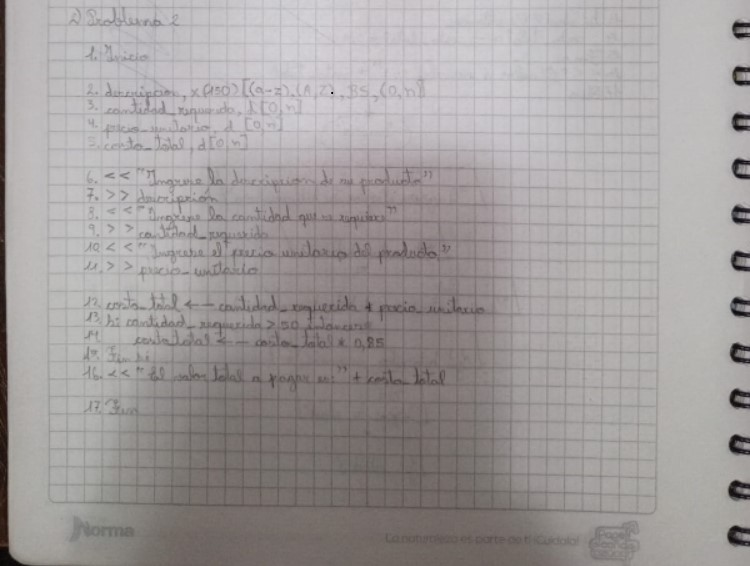 2) Problema 2
1. Inicio
2. descripcion, x(150) [(a-z), (A,Z), BS, (0,n)]
3. cantidad_requerida, d [0,n]
4. precio_unitario, d [0,n]
5. costo_total, d [0,n]
6. << "Ingrese la descripcion de su producto"
7. >> descripción
8. << "Ingrese la cantidad que se requiere"
9. >> cantidad_requerida
10. << "Ingrese el precio unitario del producto"
11. >> precio_unitario
12. costo_total ← cantidad_requerida * precio_unitario
13. Si cantidad_requerida > 50 entonces
14 costo total ← costo_total * 0,85
15. Fin si
16. << "El valor total a pagar es:" + costo_total
17. Fin
Norma
La naturaleza es parte de ti ¡Cuídala!